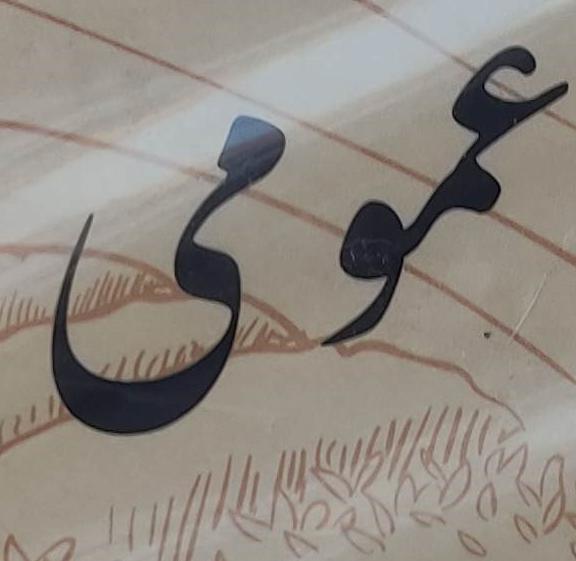 عمومی